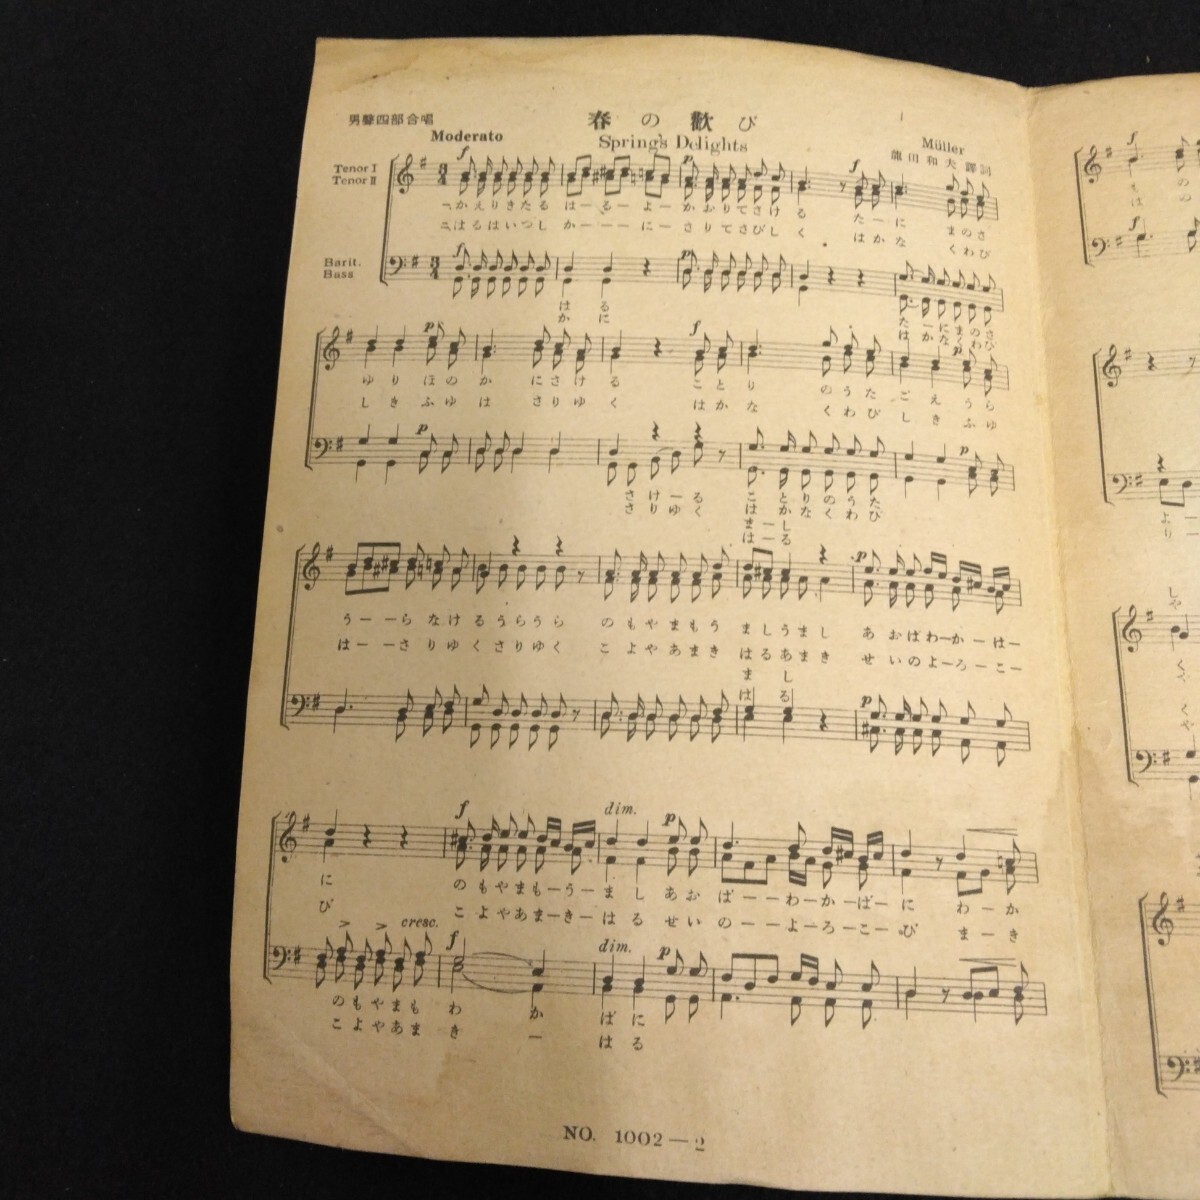 男聲四部合唱
春の歡び
Moderato
Spring's Delights
Müller
龍田和夫譯詞
Tenor I
Tenor II
一、かえりきたる はーるーよーかおりてさける たーに まのさ
二、はるはいつし かーーーにーさりてさびしく はかな くわび
Barit.
Bass
はる
かに
たーにまのさ
はかなくわび
ゆりほのかにさける ことり のうたごえうら
しきふゆはさりゆく はかな くわびしきふゆ
さけーる ことりのうた
さりゆく はかなくわび
まーし
はーる
うーーらなけるうらうら のもやまもう ましうまし あおばわーかーはー
はーーさりゆくさりゆく こよやあまき はるあまき せいのよーろーこー
まし
はる
に のもやまもーうーまし あおばーーわーかーばーに わーか
び こよやあまーきーはる せいのーーよーろーこーび まーき
cresc.
dim.
dim.
のもやまも わ か ばに
こよやあま き ー はる
NO. 1002—2